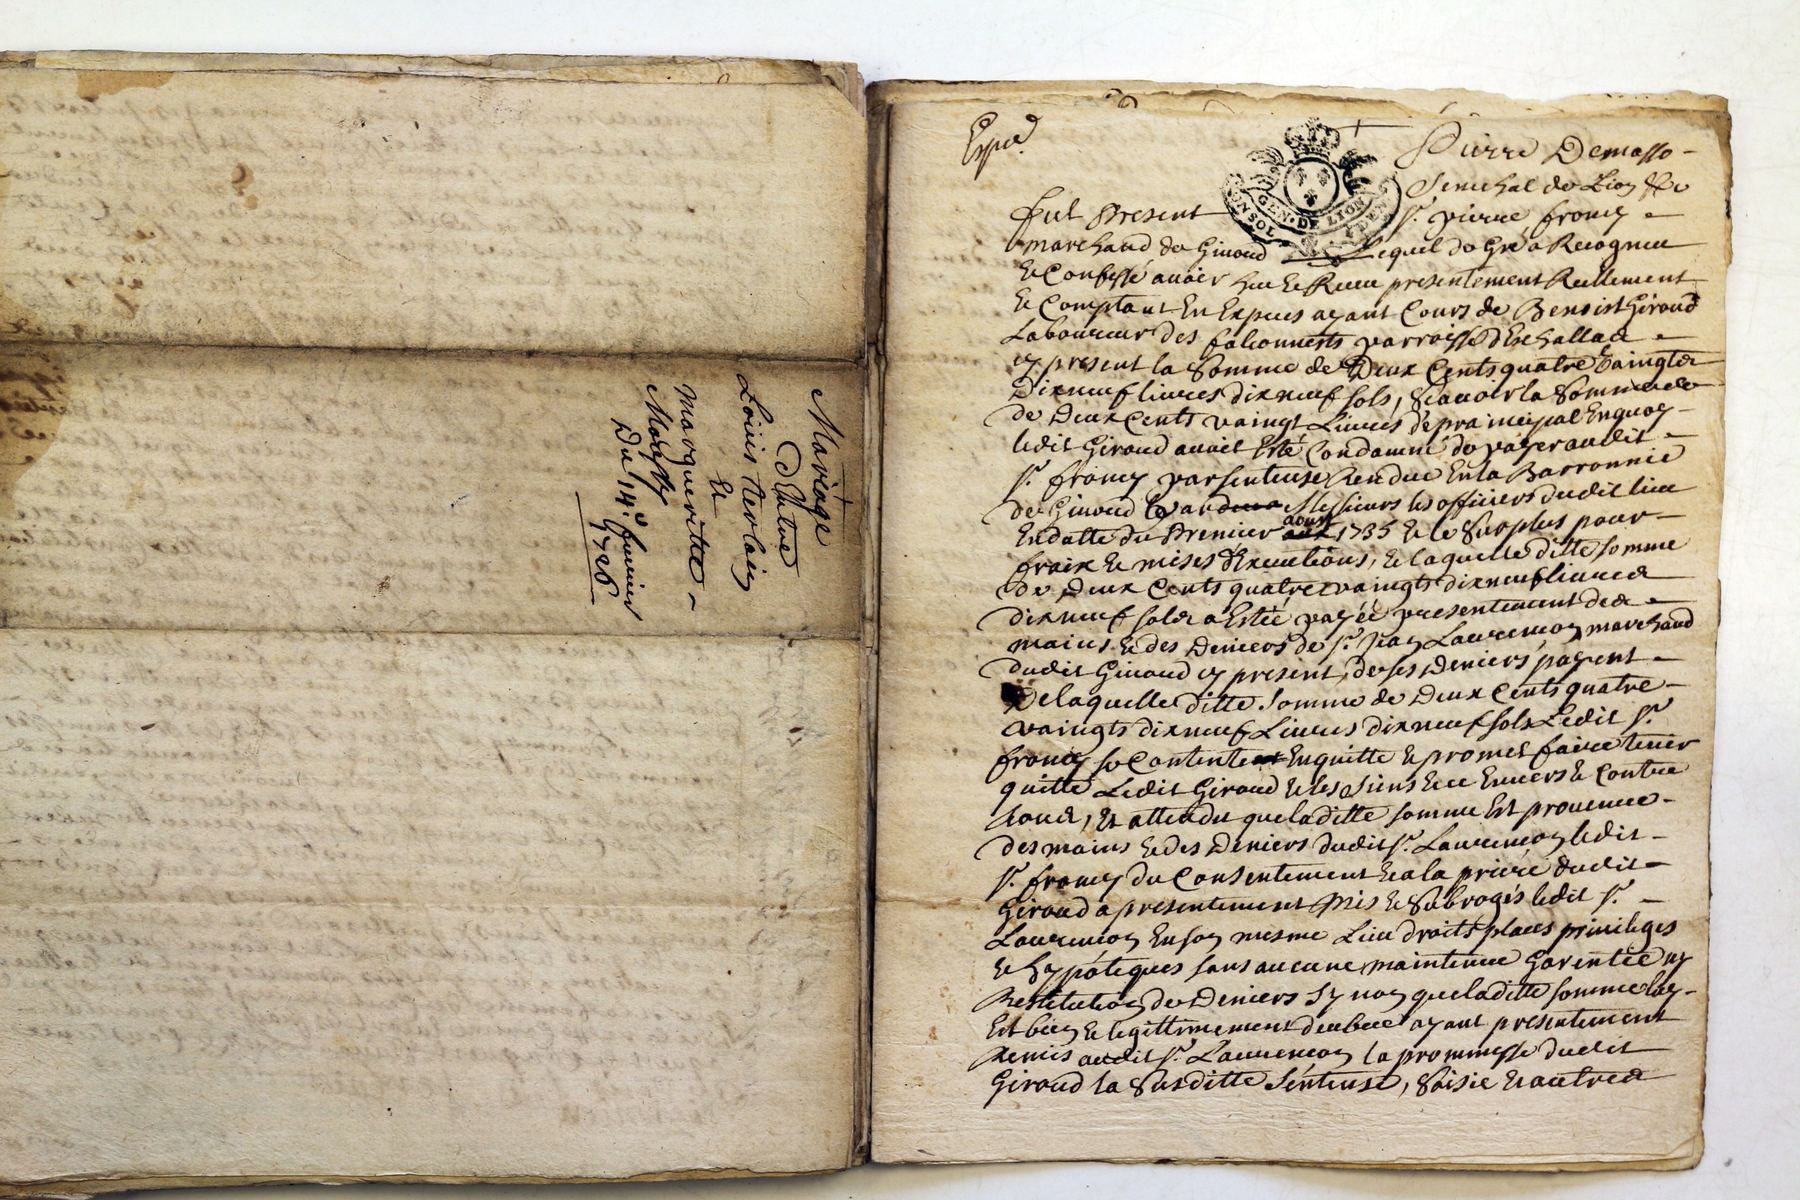 Mariage
D'Entre
Louis terlain
Et
margueritte
Du 14e. feuvrier
1726
Expéd.
GEN. DE LION
Pierre Demasso
Senechal de Lion &c
fut Present sr. pierre francy
marchand de Givord Lequel de Gré a Recogneu
& Confessé avoir heu & Receu presentement Reellement
& Comptant En Especes ayant Cours de Benoist Giroud
Laboureur des falconnetts parroisse d'Eschallas
cy present la Somme de Deux Cents quatre Vaingts
Dixneuf livres dixneuf sols, Scavoir la Somme
de Deux Cents vaingt Livres de principal Enquoy
ledit Giroud avoit Esté Condamné de payer audit
sr. francy par sentense Rendue En la Barronnie
de Givord par Messieurs les officiers dudit lieu
En datte du Premier aoust 1735 & le Surplus pour
fraix & mises d'Executions, & laquelle ditte somme
de Deux Cents quatre vaingts dixneuf livres
dixneuf sols a Estée payée presentement des
mains & des Deniers de sr. Jean Laurençon marchand
dudit Givord cy present, de ses Deniers payent
De laquelle ditte Somme de Deux Cents quatre
vaingts dixneuf Livres dixneuf sols Ledit sr.
francy se Contente Enquitte & promet faire tenir
quitte Ledit Giroud & les Siens Envers & Contre
tous, Et attendu que laditte somme Est provenue
des mains & des Deniers dudit sr. Laurençon ledit
sr. francy du Consentement & a la priere dudit
Giroud a presentement Mis & Subrogés ledit sr.
Laurençon En son mesme Lieu droits places privileges
& hypoteques sans aucune maintenue Garentie ny
Restitution de Deniers Sy non que laditte somme luy
Est bien & legittimement deubue ayant presentement
Remis audit sr. Laurençon la prommesse dudit
Giroud la Susditte Sentense, Saisie & autres